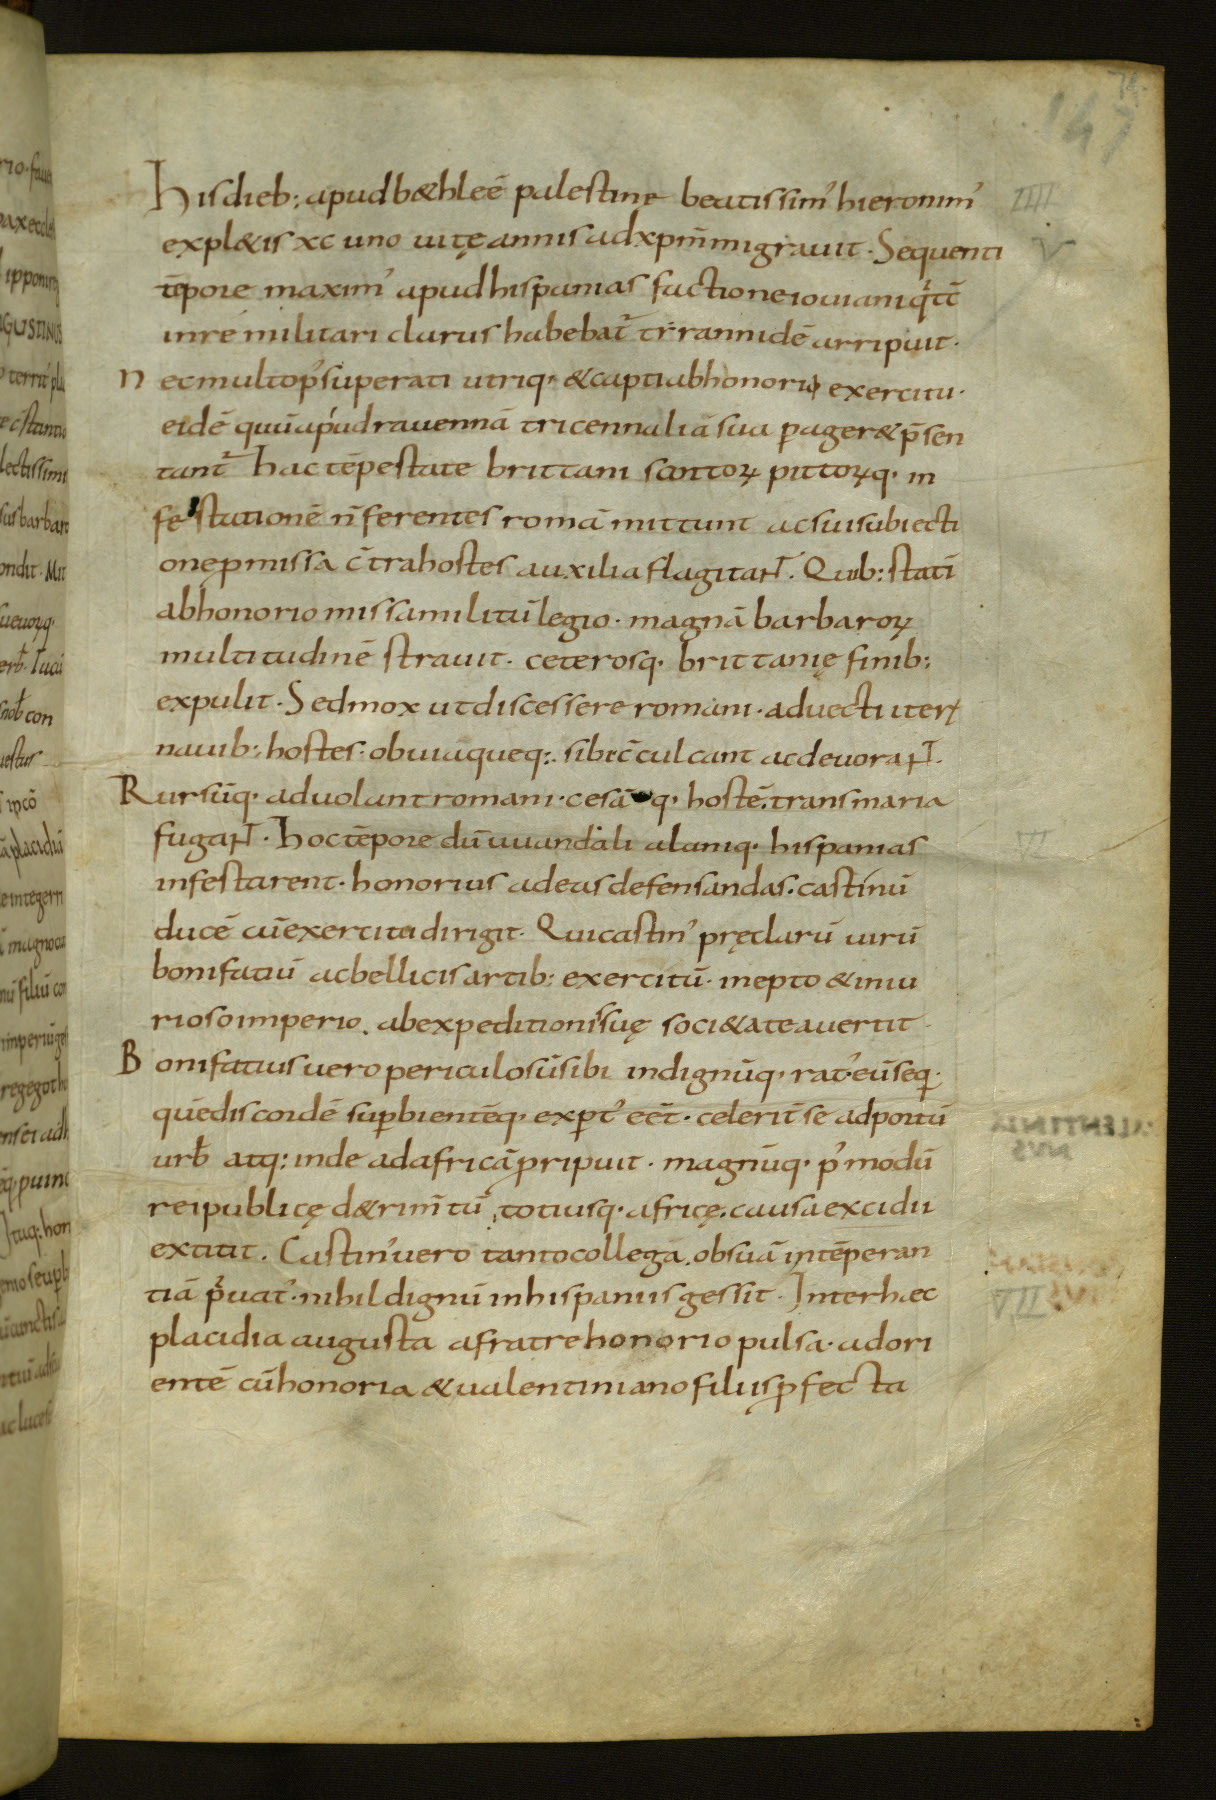 147
IIII
V
Hisdieb; apud b&hleē palestinę beatissim' hieronim'
expl&is xc uno uitę annis ad xp̄m migrauit. Sequenti
tēpore maxim' apud hispanias factione iouiani
in re militari clarus habebat᷑ tyrannidē arripuit.
Nec multo p' superati utriq· & capti ab honorio exercitu·
eidē quū apud rauennā tricennalia sua pager& p̄sen
tant᷑ hac tēpestate brittani scottoꝝ pittoꝝq· in
festationē n̄ ferentes romā mittunt ac sui subiecti
one ꝓmissa c̄tra hostes auxilia flagitaɴᴛ. Quib; statī
ab honorio missa militū legio· magnā barbaroꝝ
multitudinē strauit. ceterosq· brittanię finib;
expulit. Sed mox ut discessere romani· aduecti iteꝝ
nauib; hostes· obuia queq; sibi c̄culcant ac deuoraɴᴛ.
Rursūq· aduolant romani· cesāq· hostē trans maria
fugaɴᴛ. Hoc tēpore dū uuandali alaniq· hispanias
infestarent· honorius ad eas defensandas. castinū
ducē cū exercitu dirigit. Qui castin' pręclarū uirū
bonifatiū ac bellicis artib; exercitū· inepto & iniu
rioso imperio. ab expeditionis suę soci&ate auertit
Bonifatius uero periculosū sibi indignūq· rat' eū seq·
quē discordē supbientēq· exptꝰ eēt. celerit᷑ se ad portū
urb̄ atq; inde ad africā ꝓripuit. magnūq· p' modū
reipublicę d&rim̄tū, totiusq· africę. causa excidii
extitit. Castin' uero tanto collega. ob suā intēperan
tiā p'uat'· nihil dignū in hispaniis gessit. Inter hæc
placidia augusta a fratre honorio pulsa· ad ori
entē cū honoria & ualentiniano filiis ꝓfecta